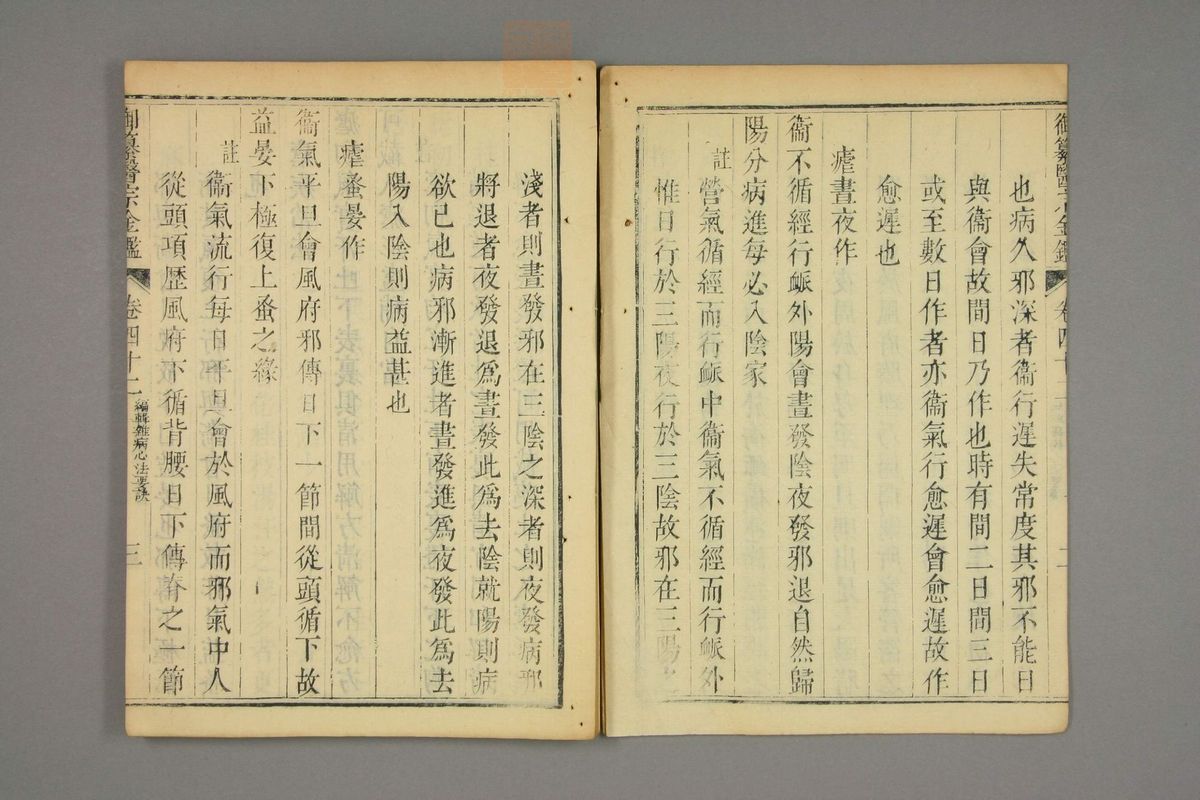 御纂醫宗金鑑
卷四十二
二
也病久邪深者衞行遲失常度其邪不能日
與衞會故間日乃作也時有間二日間三日
或至數日作者亦衞氣行愈遲會愈遲故作
愈遲也
瘧晝夜作
衞不循經行脈外陽會晝發陰夜發邪退自然歸
陽分病進每必入陰家
註
營氣循經而行脈中衞氣不循經而行脈外
惟日行於三陽夜行於三陰故邪在三陽
淺者則晝發邪在三陰之深者則夜發病邪
將退者夜發退爲晝發此爲去陰就陽則病
欲已也病邪漸進者晝發進爲夜發此爲去
陽入陰則病益甚也
瘧蚤晏作
衞氣平旦會風府邪傳日下一節間從頭循下故
益晏下極復上蚤之緣
註
衞氣流行每日平旦會於風府而邪氣中人
從頭項歴風府下循背腰日下傳脊之一節
御纂醫宗金鑑
卷四十二
編輯雜病心法要訣
三